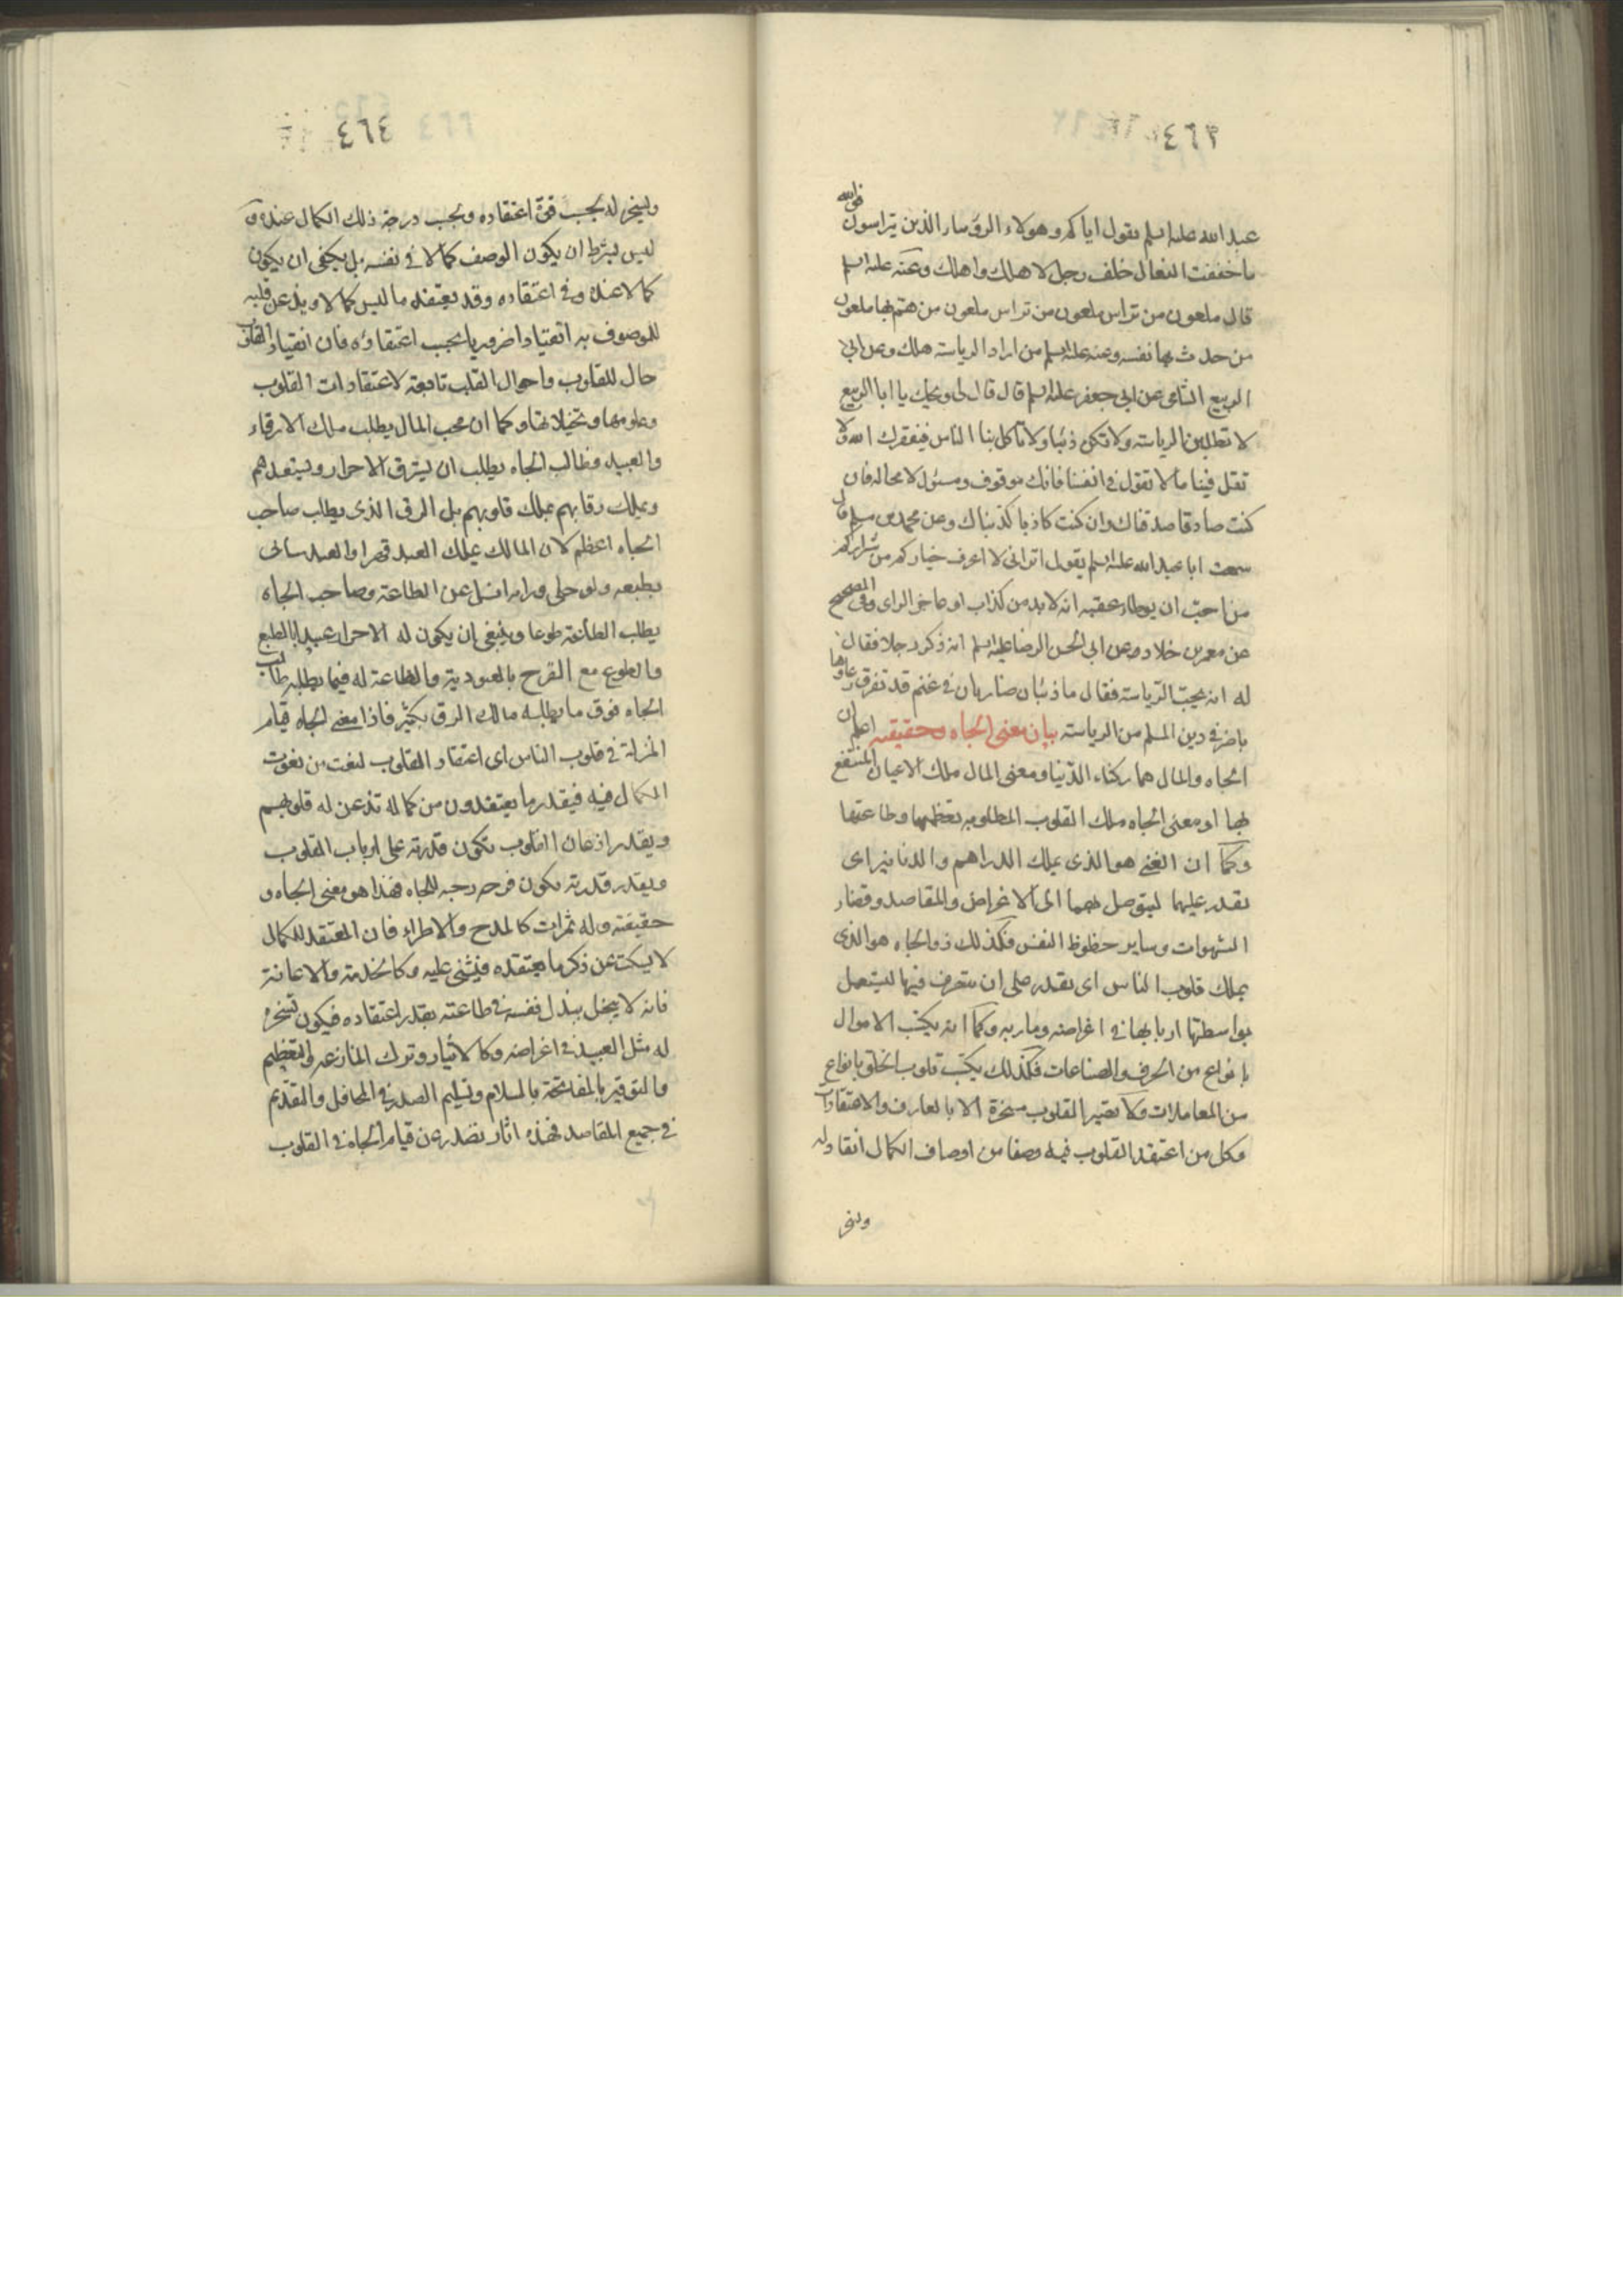 ٤٦٣
عبد الله عليه السلم يقول اياكم وهولاء الرؤسار الذين يتراسون فوالله
ما خففت النعال خلف رجل الا هلك واهلك وعنه عليه السلم
قال ملعون من تراس ملعون من تراس ملعون من هتم بها ملعون
من حدث بها نفسه وعنه عليه السلم من اراد الرياسة هلك وعن ابى
الربيع الشامى عن ابى جعفر عليه السلم قال قال لى ويحك يا ابا الربيع
لا تطلبن الرياسة ولا تكن ذئبا ولا تاكل بنا الناس فيفقرك الله ولا
تقل فينا ما لا تقول فى انفسنا فانك موقوف ومسئول لا محالة فان
كنت صادقا صدقناك وان كنت كاذبا كذبناك وعن محمد بن مسلم قال
سمعت ابا عبد الله عليه السلم يقول اترانى لا اعرف خياركم من شراركم
من احب ان يوطاء عقبه انه لا بد من كذاب او عاجز الراى وفى الصحيح
عن معمر بن خلاد عن ابى الحسن الرضا عليه السلم انه ذكر رجلا فقال
له انه يحب الرياسة فقال ما ذئبان ضاريان فى غنم قد تفرق رعاوها
باضر فى دين المسلم من الرياسة بيان معنى الجاه وحقيقته اعلم ان
الجاه والمال هما ركناء الدنيا ومعنى المال ملك الاعيان المنتفع
بها او معنى الجاه ملك القلوب المطلوبه تعظيمها وطاعتها
وكما ان الغنى هو الذى يملك الدراهم والدنانير اى
يقدر عليهما ليتوصل بهما الى الاغراض والمقاصد وقضار
الشهوات وساير حظوظ النفس فكذلك ذو الجاه هو الذى
يملك قلوب الناس اى يقدر على ان يتصرف فيها ليستعمل
بواسطتها اربابها فى اغراضه وماربه وكما انه يكتسب الاموال
بانواع من الحرف والصناعات فكذلك يكتسب قلوب الخلق بانواع
من المعاملات ولا تصير القلوب مسخرة الا بالمعارف والاعتقادات
فكل من اعتقد القلوب فيه وصفا من اوصاف الكمال انقاد له
وتسخر
٤٦٤
وتسخر له بحسب قوة اعتقاده وبحسب درجة ذلك الكمال عنده و
ليس يشترط ان يكون الوصف كمالا فى نفسه بل يكفى ان يكون
كمالا عنده وفى اعتقاده وقد يعتقد ما ليس كمالا ويذعن قلبه
للموصوف به انقيادا ضروريا بحسب اعتقاده فان انقياد القلب
حال للقلوب واحوال القلب تابعة لاعتقادات القلوب
وعلومها وتخيلاتها وكما ان محب المال يطلب ملك الارقاء
والعبيد فطالب الجاه يطلب ان يسترق الاحرار ويستعبدهم
ويملك رقابهم بملك قلوبهم بل الرق الذى يطلب صاحب
الجاه اعظم لان المالك يملك العبد قهرا والعبد يتابى
بطبعه ولو خلى ورايه انسل عن الطاعة وصاحب الجاه
يطلب الطاعة طوعا وينبغى ان يكون له الاحرار عبيدا بالطبع
والطوع مع الفرح بالعبودية والطاعة له فيما يطلبه طالب
الجاه فوق ما يطلبه مالك الرق بكثير فاذا معنى الجاه قيام
المنزلة فى قلوب الناس اى اعتقاد القلوب لنعت من نعوت
الكمال فيه فبقدر ما يعتقدون من كماله تذعن له قلوبهم
وبقدر اذعان القلوب تكون قدرته على ارباب القلوب
وبقدر قدرته يكون فرحه وحبه للجاه فهذا هو معنى الجاه و
حقيقته وله ثمرات كالمدح والاطراء فان المعتقد للكمال
لا يسكت عن ذكر ما يعتقده فيثنى عليه وكالخدمة والاعانة
فانه لا يبخل ببذل نفسه فى طاعته بقدر اعتقاده فيكون تسخره
له مثل العبيد فى اغراضه وكالايثار وترك المنازعه والتعظيم
والتوقير بالمفاتحة بالسلام وتسليم الصدر فى المحافل والتقديم
فى جميع المقاصد فهذه اثار تصدر عن قيام الجاه فى القلوب